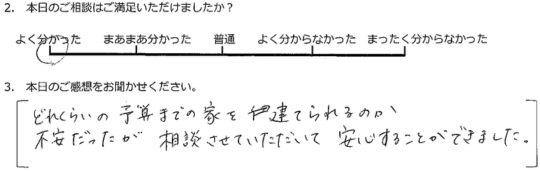 2. 本日のご相談はご満足いただけましたか?
よく分かった まあまあ分かった 普通 よく分からなかった まったく分からなかった
3. 本日のご感想をお聞かせください。
どれくらいの予算までの家を建てられるのか
不安だったが 相談させていただいて 安心することができました。